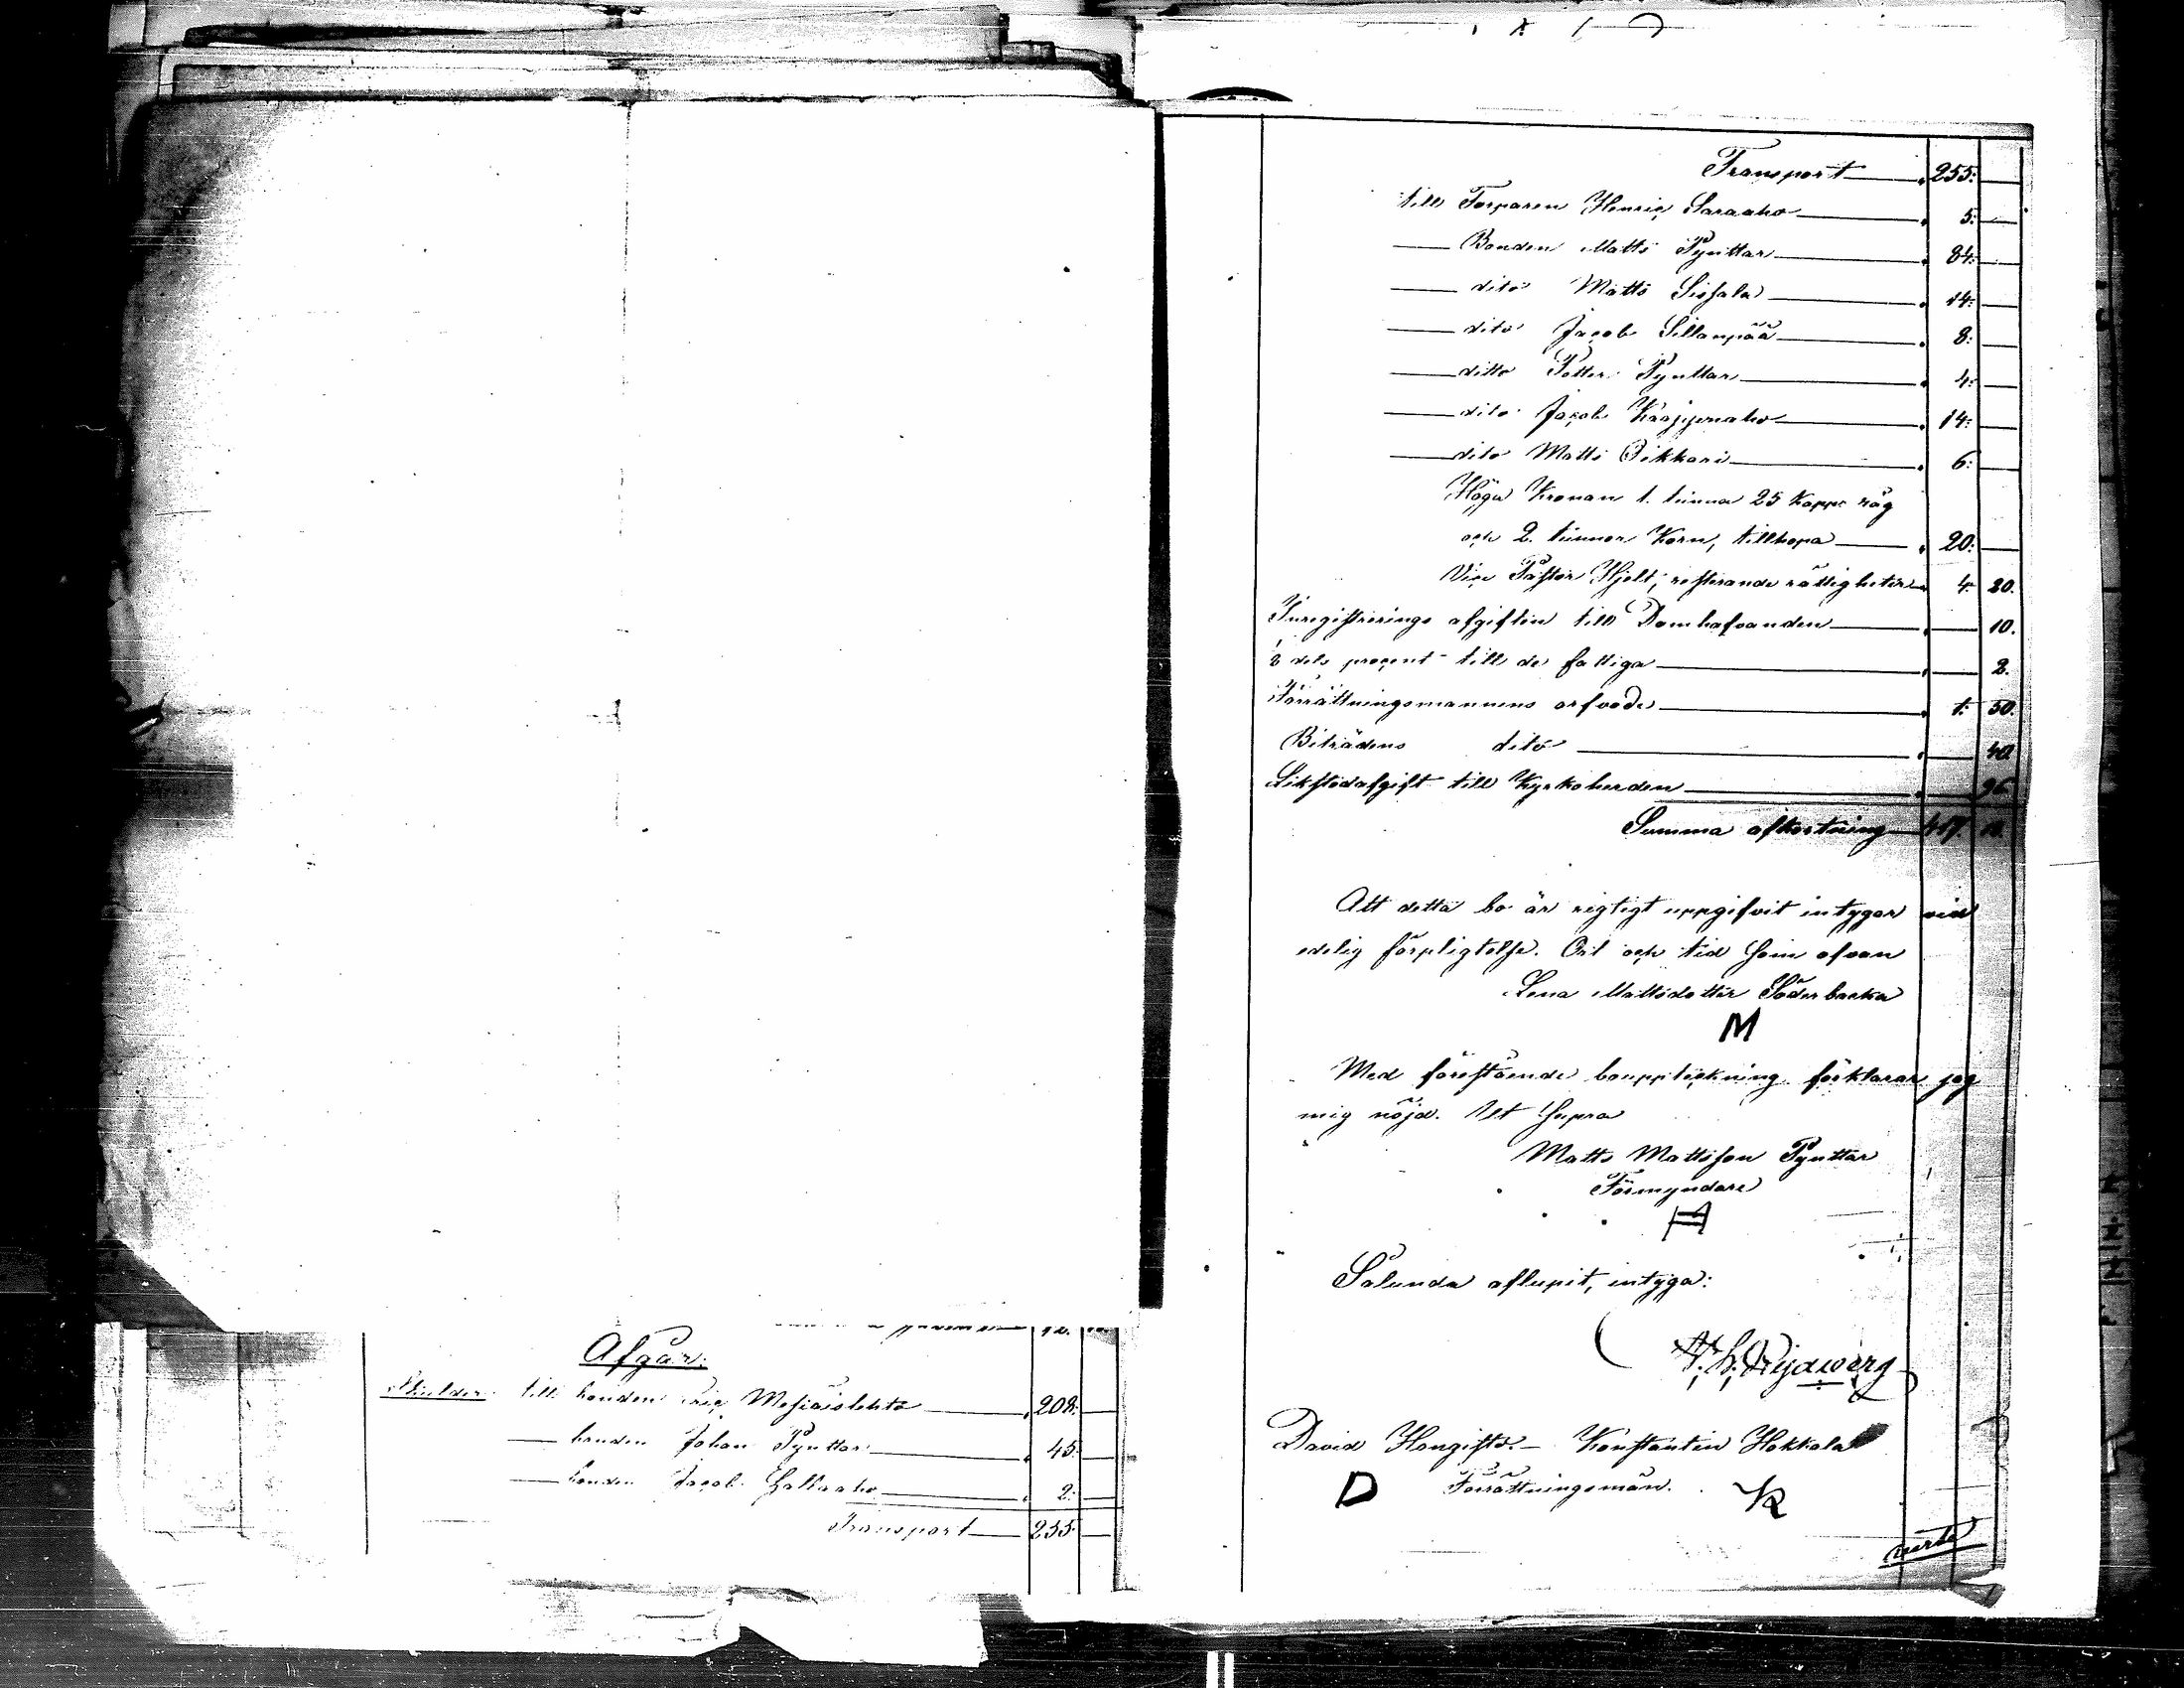 Afgår:
Skulder till bonden Eric Mesiäislehto 208:
bonden Johan Pynttar 45:
bonden Jacob 2:
Transport 255:
Transport 255:
till Torparen Henric Saraaho 5:
Bonden Matts Pynttar 84:
dito Matts Sissala 14:
dito Jacob Sillanpää 8:
ditto Petter Pynttar 4:
dito Jacob 14:
dito Matts Oikkari 6:
Höga Kronan 1. tunna 25 Kappr råg
och 2. tunnor Korn, tillhopa 20:
Vice Pastor Hjelt, resterande rättigheter 4: 20.
Inregistrerings afgiften till Domhafvanden 10.
1/8 dels procent till de fattiga 2.
Förrättningsmannens arfvode 1: 50.
Biträdens dito 40.
Likstodsafgift till Kyrkoherden 96
Summa afkortning 417.
Att detta bo är rigtigt uppgifvit intygar vid
edelig förpligtelse. Ort och tid som ofvan
Lena Mattsdotter Söderbacka
M
Med förestående bouppteckning förklarar jag
mig nöjd. Ut Supra
Matts Mattsson Pynttar
Förmyndare
Sålunda aflupit, intyga:
David Hongisto. Konstantin Hokkala
D Förrättningsmän. K
verte